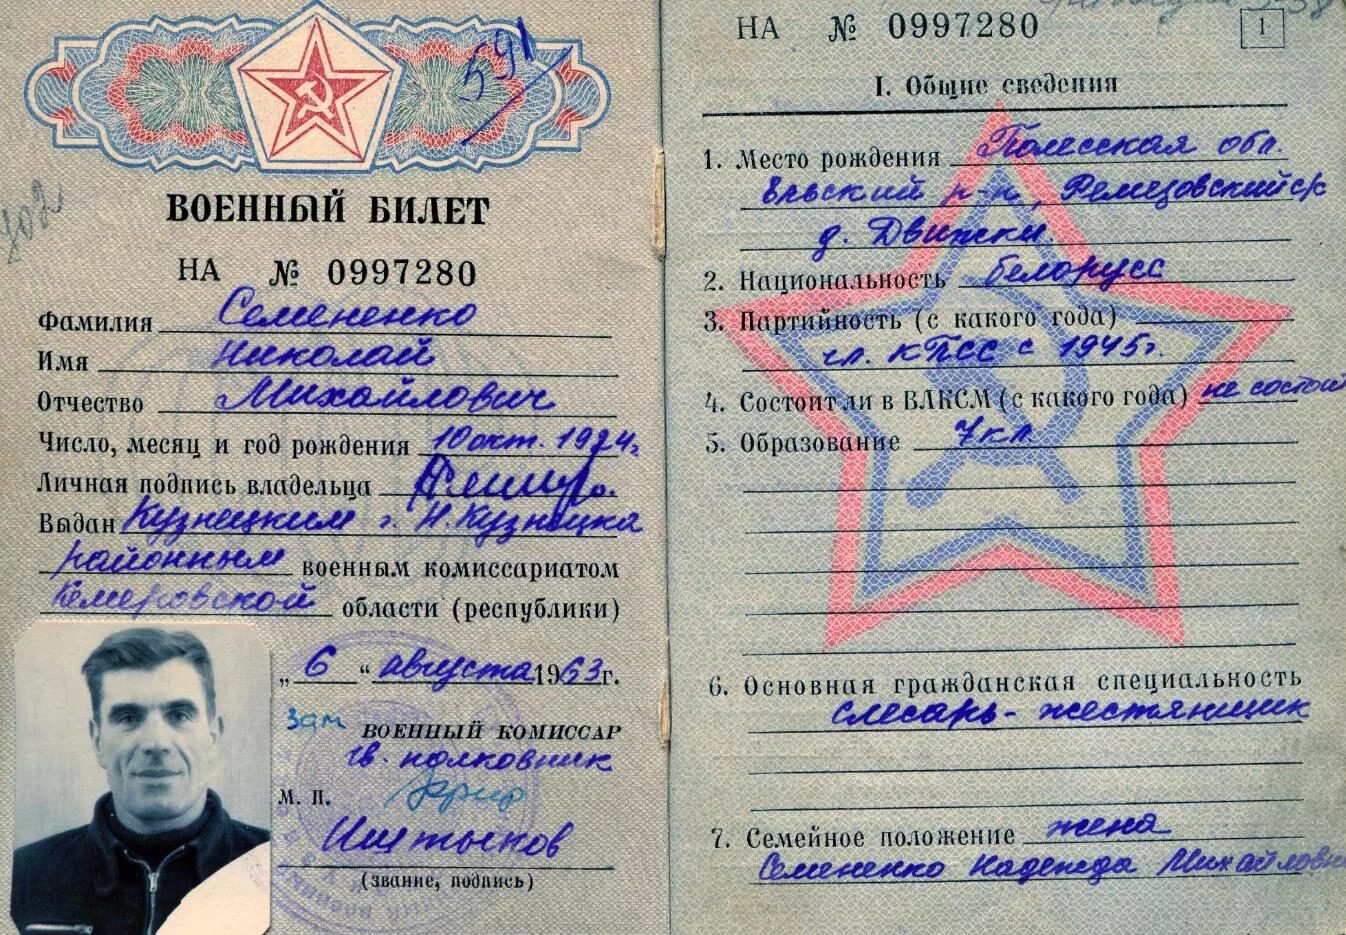 591
702
ВОЕННЫЙ БИЛЕТ
НА № 0997280
Фамилия Семененко
Имя Николай
Отчество Михайлович
Число, месяц и год рождения 10 окт. 1924г.
Личная подпись владельца
Выдан Кузнецким г. Н. Кузнецка
районным военным комиссариатом
Кемеровской области (республики)
„6“ августа 1963г.
Зам ВОЕННЫЙ КОМИССАР
гв. полковник
М. П.
Иштыков
(звание, подпись)
НА № 0997280
1
I. Общие сведения
1. Место рождения Полесская обл.
Ельский р-н, Ремезовский с/с
д. Движки
2. Национальность белорусс
3. Партийность (с какого года)
чл. КПСС с 1945г.
4. Состоит ли в ВЛКСМ (с какого года) не состоит
5. Образование 7 кл.
6. Основная гражданская специальность
слесарь-жестянщик
7. Семейное положение жена
Семененко Надежда Михайловна